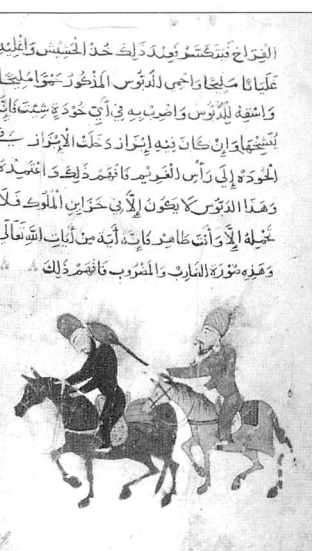 الفراخ فيتكسر فعند ذلك خذ الحشيش واغليه
غليانا مليحا واحمى الدبوس المذكور حموا مليحا
واسقه للدبوس واضرب به في أي خودة شئت فانه
وان كان فيه ابزاز دخلت الابزاز
الخوده إلى رأس الغريم فافهم ذلك واعتمده
وهذا الدبوس لا يكون إلا في خزاين الملوك فلا
تحمله إلا وأنت طاهر فانه آية من آيات الله تعالى
وهذه صورة الضارب والمضروب فافهم ذلك